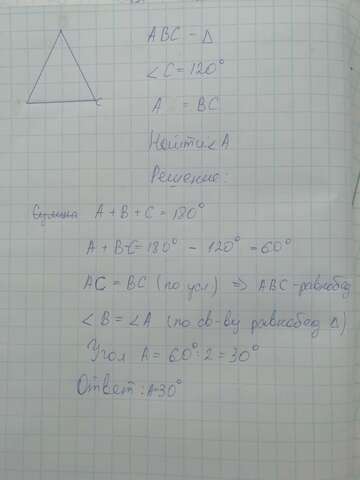 ABC - Δ
C
∠C = 120°
A = BC
Найти ∠A
Решение:
A + B + C = 180°
A + B = 180° - 120° = 60°
AC = BC (по усл) ⇒ ABC - равнобед
∠B = ∠A (по св-ву равнобед Δ)
Угол A = 60° : 2 = 30°
Ответ: A-30°